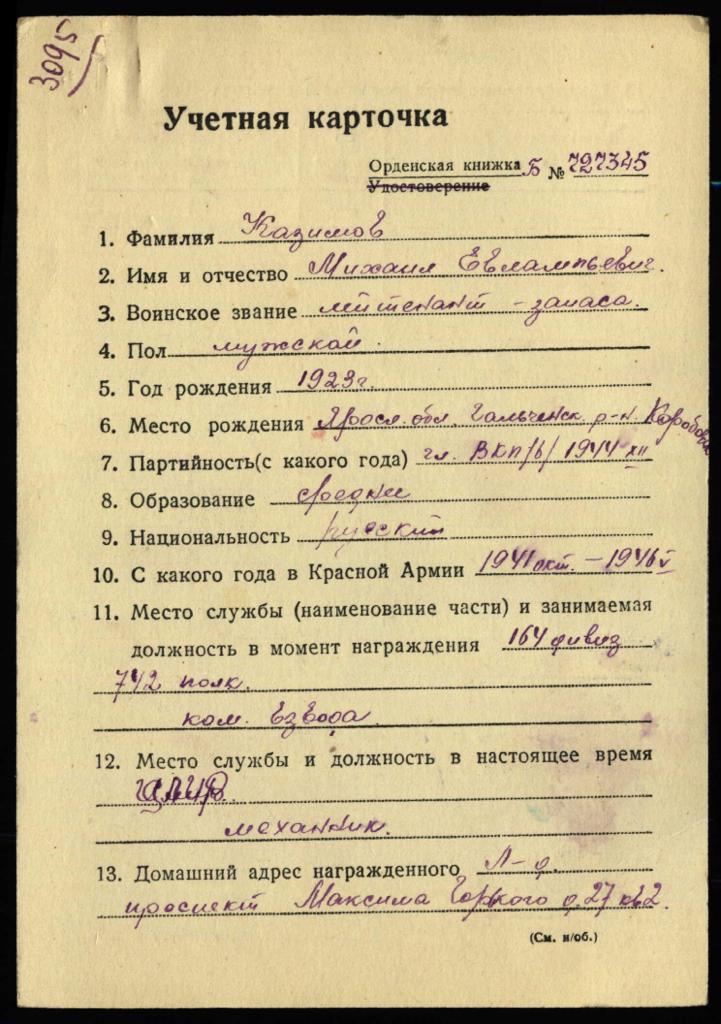 3095
Учетная карточка
Орденская книжка Б № 727345
Удостоверение
1. Фамилия Казимов
2. Имя и отчество Михаил Евлампьевич.
3. Воинское звание лейтенант - запаса.
4. Пол мужской.
5. Год рождения 1923г.
6. Место рождения Яросл. обл. р-н
7. Партийность(с какого года) чл. ВКП/б/ 1944 XII
8. Образование среднее
9. Национальность русский
10. С какого года в Красной Армии 1941 окт. – 1946 V
11. Место службы (наименование части) и занимаемая
должность в момент награждения 164 дивиз
742 полк.
ком. взвода
12. Место службы и должность в настоящее время
механик.
13. Домашний адрес награжденного Л-д.
проспект Максима Горького д. 27 кв 2.
(См. н/об.)